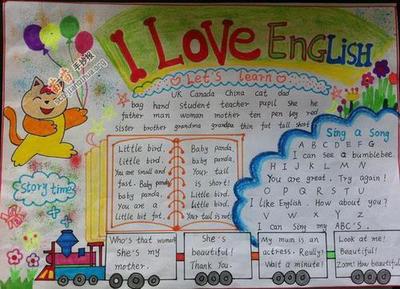 I LOVE ENGLISH
Let's learn
UK Canada China cat dad
bag hand student teacher pupil she he
father man woman mother ten pen leg red
sister brother grandma grandpa thin fat tall short
Story time
Little bird,
Little bird.
You are small and
fast. Baby panda,
baby panda.
You are a
little bit fat.
Baby panda,
baby panda.
Your tail
is short!
Little bird,
little bird,
Your tail is not.
Sing a Song
A B C D E F G
I can see a bumblebee.
H I J K L M N
You are great. Try again!
O P Q R S T U
I like English. How about you?
V W X Y Z
I can Sing my ABC'S.
Who's that woman?
She's my
mother.
She's
beautiful!
Thank You.
My mum is an
actress. Really?
Wait a minute!
Look at me!
Beautiful!
Zoom! How beautiful!